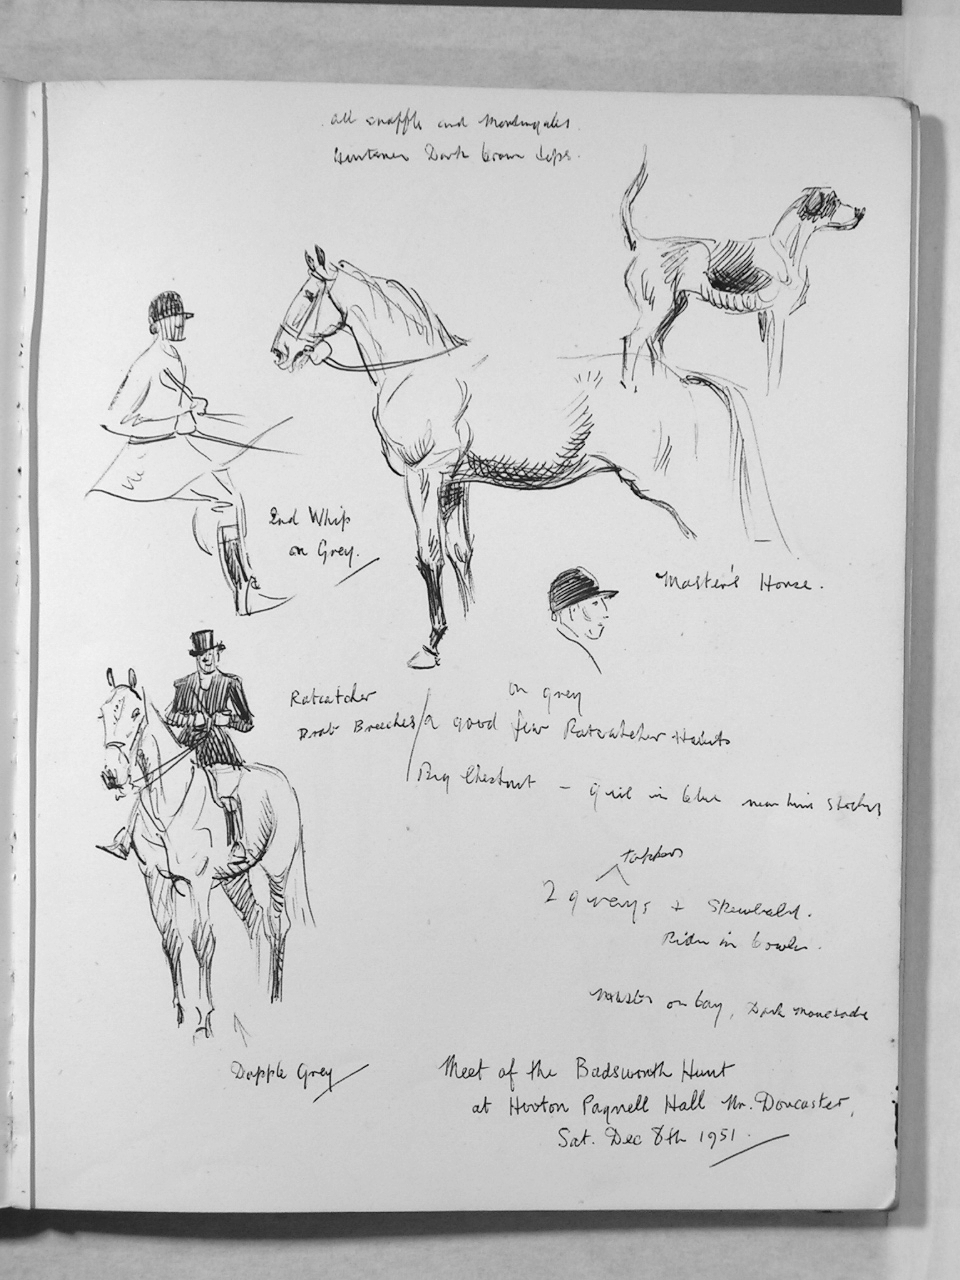 all snaffle and Martingales.
Huntsmen Dark brown
2nd Whip
on Grey.
Master's Horse.
Ratcatcher
Drab Breeches
on grey
a good few Ratcatcher Hunts
Big Chestnut – girl in blue
toppers
2 greys + Skewbald.
Rider in bowler.
Master on bay, Dark
Dapple Grey
Meet of the Badsworth Hunt
at Hooton Pagnell Hall Nr. Doncaster,
Sat. Dec 8th 1951.